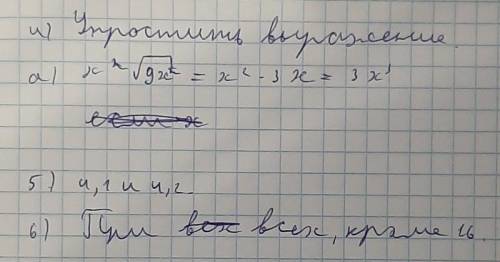 4) Упростить выражение.
а) x² √9x² = x² · 3x = 3x³
5) 4,1 и 4,2
6) При всех, кроме 16.